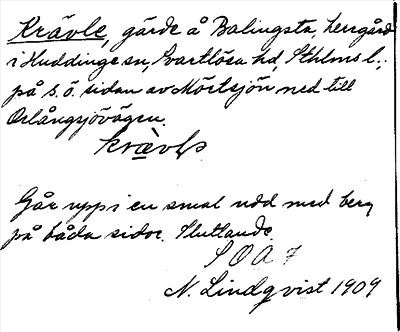 Krävle, gärde å Balingsta, herrgård
i Huddinge sn, Svartlösa hd, Sthlms l.;
på s.ö. sidan av Mörtsjön ned till
Orlångsjövägen.
Går upp i en smal udd med berg
på båda sidor. Sluttande.
S O A 7
N. Lindqvist 1909